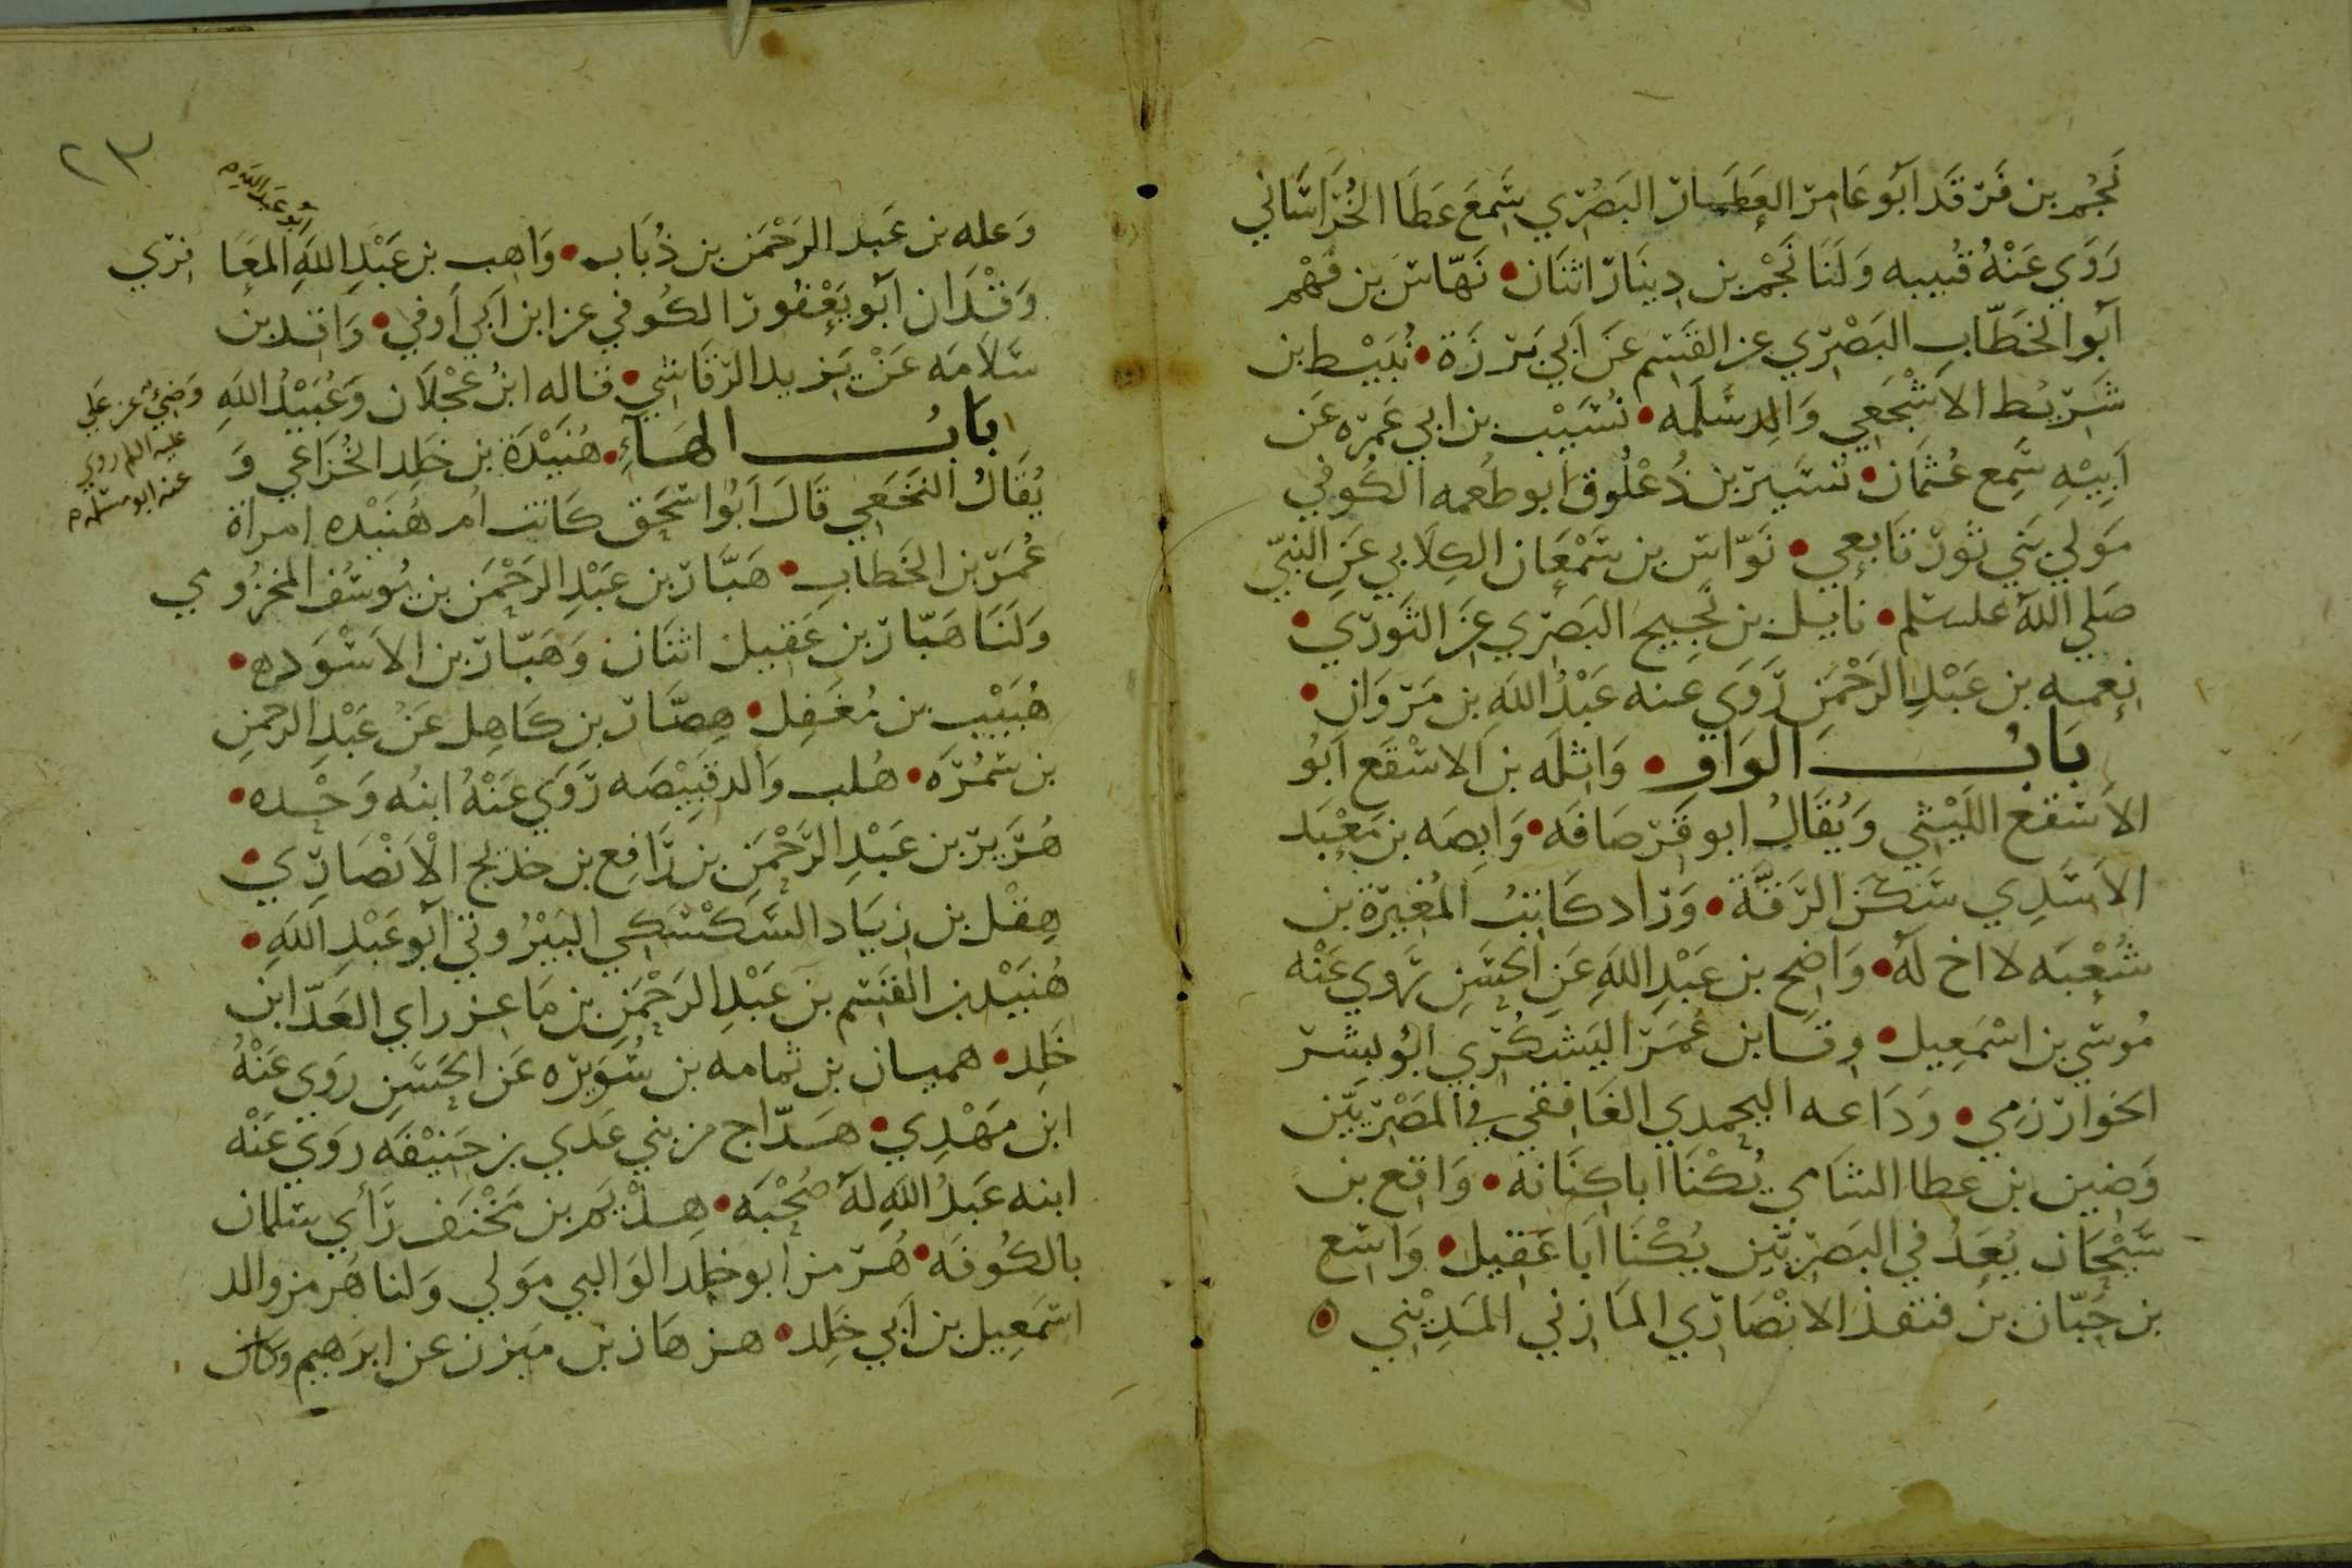 نَجْم بن فَرْقَد اَبُو عَامِر العَطَّار البَصْري سَمِعَ عَطَا الخُرَاسَاني
رَوَي عَنْهُ قُتيبه وَلَنَا نَجْم بن دِينَار اثنَان • نَهّاس بن قَهْم
اَبُو الخَطّاب البَصْري عن القَسِم عَن اَبي بَرزَة • نُبَيْط بن
شَرِيْط الاشْجَعي وَالِد سَلَمه • نُسَيْب بن ابي عَمرَه عَن
اَبِيْهِ سَمِع عُثمَان • نُسَيْر بن ذُعْلُوق ابو طُعمه الكُوفي
مَولي بَني ثَور تَابعي • نَوّاس بن سَمْعَان الكِلَابي عَنِ النبيّ
صَلي اللّه علسلم • نايل بن نَجيح البَصري عَن الثَوري •
نعمه بن عَبْدِ الرَحْمَن رَوَي عَنه عَبْدُ اللّه بن مَروَان •
بَابُ الوَاوِ • وَاثِلَه بن الاسْقَع اَبُو
الاَسقَع اللَيْثي وَيُقَالُ ابو قرصَافَه • وَابِصَه بن مَعْبَد
الاَسَدِي سَكَن الرَقَّة • وَرّاد كَاتبُ المُغيرَة بن
شُعْبَه لا اخ لَهُ • وَاضِح بن عَبْدِ اللّهِ عَن الحَسَنِ يَروي عَنْه
مُوسَي بن اسْمَعِيل • وِرقَا بن عُمَر اليَشكُري ابُو بِشر
الخَوارزمي • وَدَاعه اليحمدي الغَافقي في المصْريّين
وَضِين بن عطا الشَامي يُكْنَا ابا كِنَانه • وَاقع بن
سَحْبَان يُعَدُ في البَصريّين يُكْنَا اَبَا عَقِيل • وَاسِع
بن حَبّان بن منقذ الانْصَارَي المَازني المَدِيْني
٢٣
وَعله بن عَبد الرَحْمَن بن ذُبَاب • وَاهِب بن عَبْدِ اللّهِ المعَا فِري
ابُو عَبد اللّه م
وَقْدَان اَبُو يَعْفُور الكُوفي عن ابن اَبي اَوفي • وَاقِد بن
سَلاَمَه عَنْ يَزيد الرّقَاشي • قاله ابنُ عَجْلَان وَعُبَيْدُ اللّهِ
وَضِيُ عَن عَلي
عليه السلم روي
عنه ابو مسلمه م
بَابُ الهَاءِ • هُنَيْدَة بن خَلِد الخُزَاعي وَ
يُقَالُ النَخَعي قَالَ اَبُو اسحَق كَانت اُم هُنَيْده امرَاة
عُمَرَ بن الخَطاب • هَبَّار بن عَبْدِ الرَحْمَن بن يُوسُف المخزُومي
وَلَنَا هَبّار بن عَقِيل اثنَان وَهَبّار بن الاَسْوَد ه •
هُبَيْب بن مُغفِل • هِصّان بن كَاهِل عَن عَبْدِ الرحمنِ
بن سَمُرَه • هُلب وَالد قَبِيْصَه رَوَي عَنْهُ ابنُه وَحْده •
هُرَيْر بن عَبْدِ الرَحْمَن بن رَافِع بن خديج الاَنْصَارِي •
هِقْل بن زيَاد السَكْسَكي البَيْرُوتي اَبُو عَبْدِ اللّهِ •
هُنَيْد بن القسِم بن عَبْدِ الرَحْمَن بن مَاعز راي العَدّا ابن
خَلِد • هميان بن ثمامه بن سُوَيره عَن الحَسَنِ روَي عَنْهُ
ابن مَهْدِي • هَدّاج من بني عَدي بن حَنِيْفَه روَي عَنْه
ابنه عَبدُ اللّهِ لهُ صُحْبَه • هِدْيَم بن مَخْنَف رَأي سلمان
بالكُوفَه • هُرمز ابو خلِد الوَالبي مَولي وَلنا هُرمز والد
اسمَعِيل بن اَبي خَلِد • هزهَاز بن مَيزن عن ابرَهيم وكان